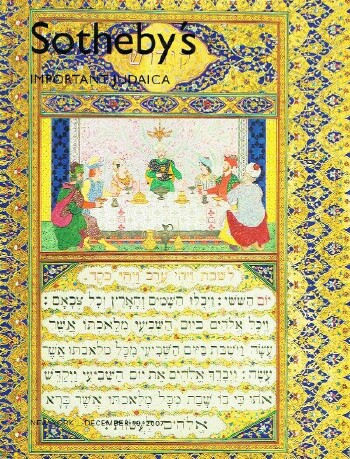 Sotheby's
IMPORTANT JUDAICA
לשבת ויהי ערב ויהי בקר
יוֹם הַשִּׁשִּׁי: וַיְכֻלּוּ הַשָּׁמַיִם וְהָאָרֶץ וְכָל צְבָאָם:
וַיְכַל אֱלֹהִים בַּיּוֹם הַשְּׁבִיעִי מְלַאכְתּוֹ אֲשֶׁר
עָשָׂה וַיִּשְׁבֹּת בַּיּוֹם הַשְּׁבִיעִי מִכָּל מְלַאכְתּוֹ אֲשֶׁר
עָשָׂה: וַיְבָרֶךְ אֱלֹהִים אֶת יוֹם הַשְּׁבִיעִי וַיְקַדֵּשׁ
אֹתוֹ כִּי בוֹ שָׁבַת מִכָּל מְלַאכְתּוֹ אֲשֶׁר בָּרָא
אֱלֹהִים לַעֲשׂוֹת
NEW YORK DECEMBER 19, 2007